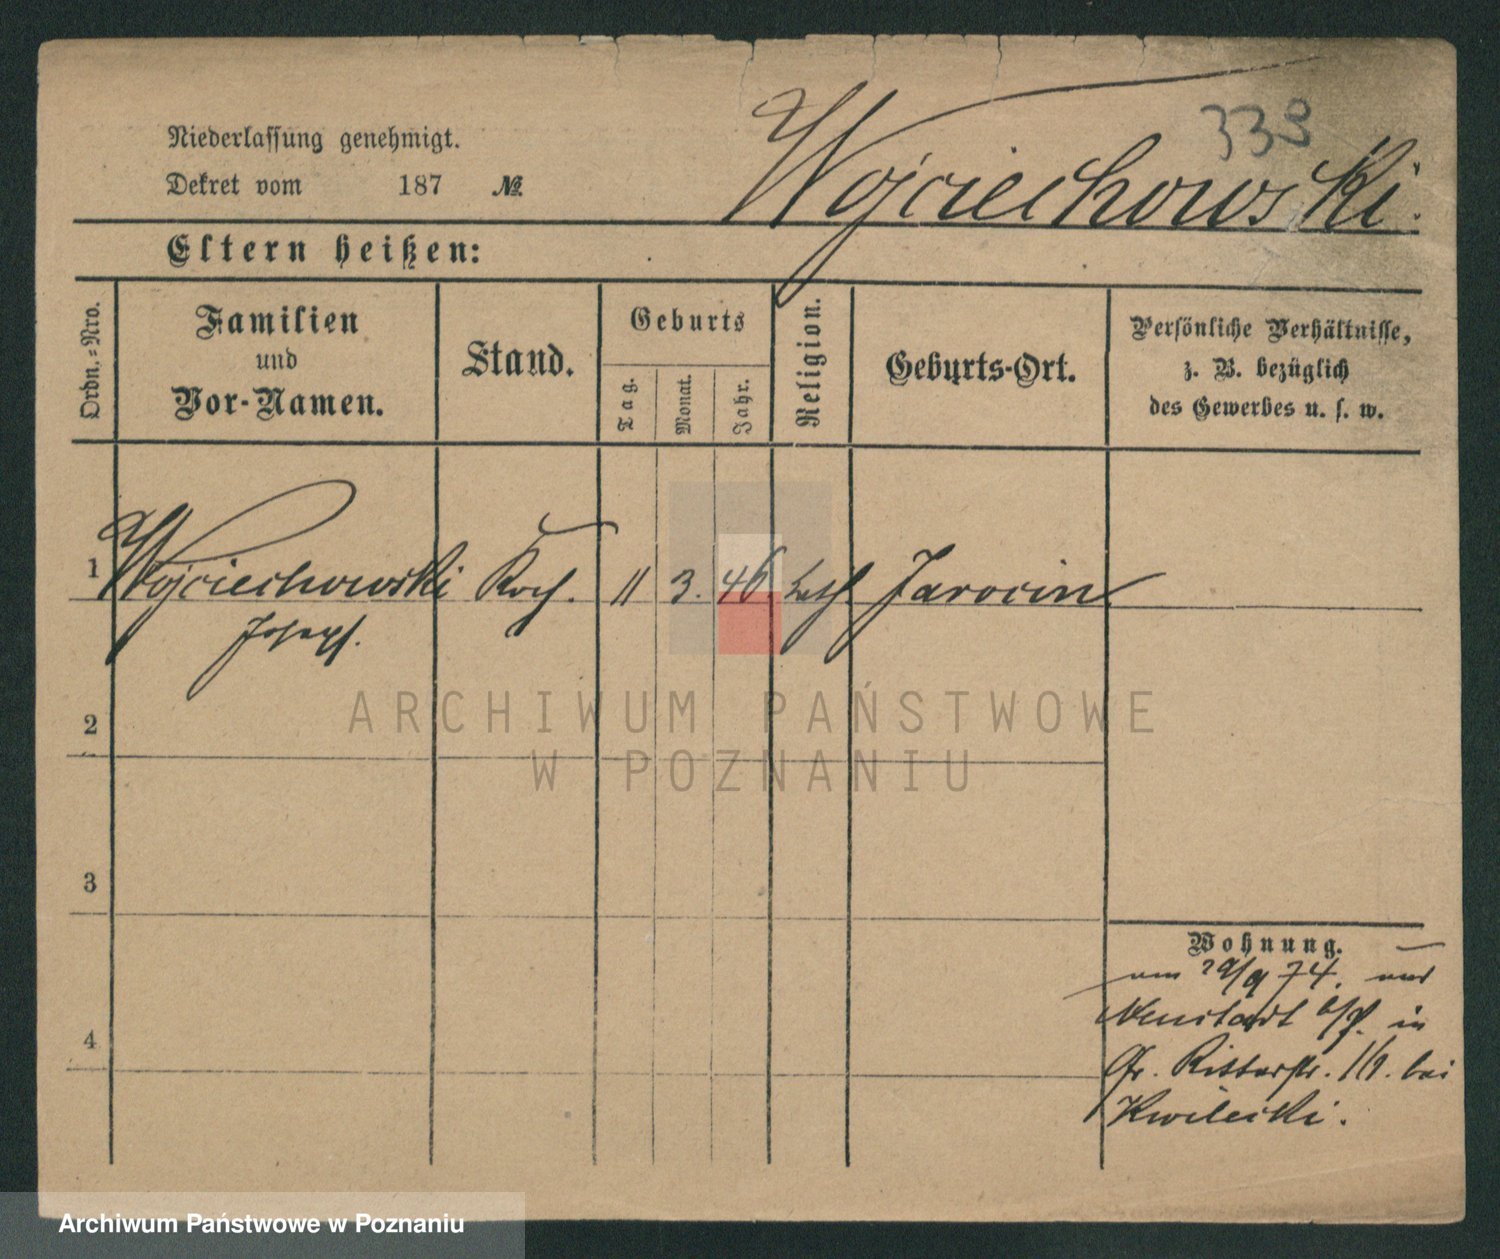 338
Wojciechowski.
Niederlassung genehmigt.
Dekret vom 187 №
Eltern heißen:
Ordn.-Nro.
Familien
und
Vor-Namen.
Stand.
Geburts
Tag.
Monat.
Jahr.
Religion.
Geburts-Ort.
Persönliche Verhältnisse,
z. B. bezüglich
des Gewerbes u. s. w.
1 Wojciechowski Koch. 11 3. 46. kath. Jarocin
Joseph.
2
3
4
Wohnung.
74. aus
Neustadt b/P. in
Gr. Ritterstr. bei
Kwilecki.
ARCHIWUM PAŃSTWOWE
W POZNANIU
Archiwum Państwowe w Poznaniu